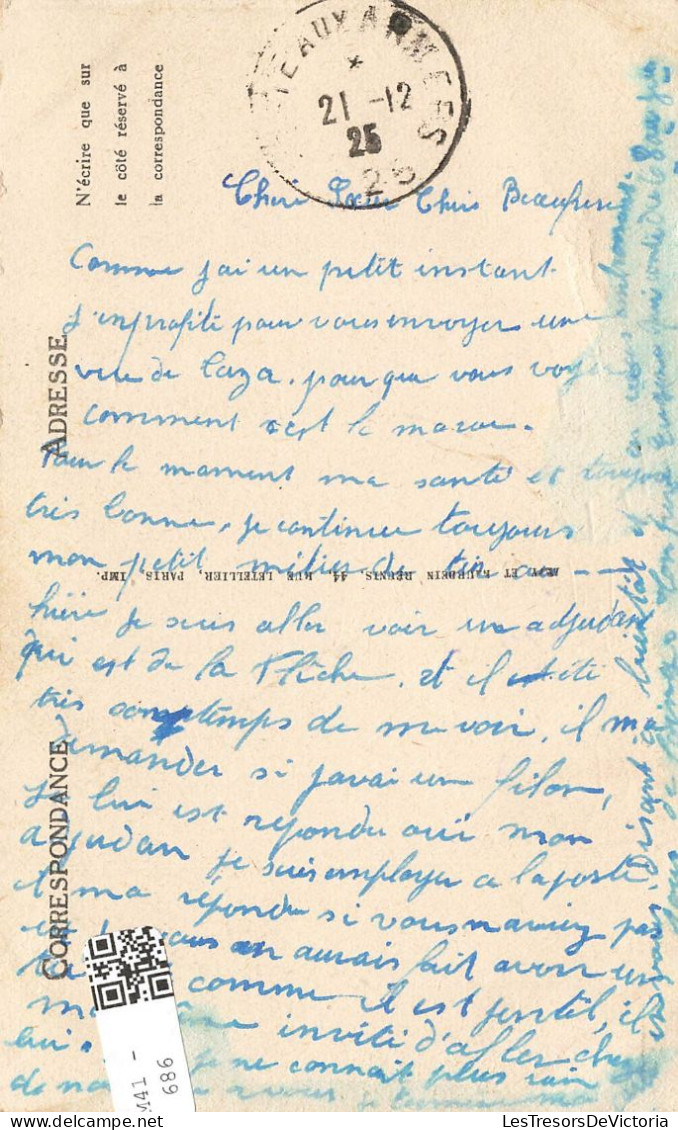 N'écrire que sur
le côté réservé à
la correspondance
AUX ARMÉES
*
21 -12
25
ADRESSE
CORRESPONDANCE
ET NEURDEIN RÉUNIS, 44, RUE LETELLIER, PARIS IMP.
Cheri Sœur Chers Beaufrere
Comme j'ai un petit instant
j'enprofite pour vous envoyer une
vue de Caza. pour que vous voyez
comment c'est le maroc.
Pour le moment ma santé et toujours
très bonne, je continue toujours
mon petit métier de
hière je suis aller voir un adjudan
qui est de la Flèche, et il
très comptemps de me voir, il ma
demander si javai un filon,
je lui est répondu oui mon
ajudan je suis employer a laposte,
et ma répondu si vous naviez pas
vous en aurais fait avoir un
comme il est jentil, il
invité d'aller chez
lui. je ne connait plus rien
de a vous je termine ma
en vous disant a bientôt et
M41 -
686
LesTresorsDeVictoria